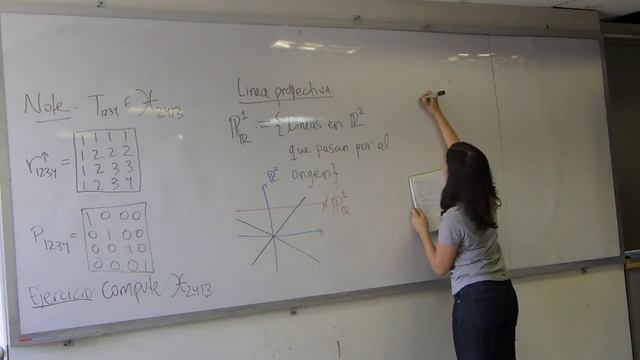 Note: T₁₂₃₄ ∈ X₂₄₁₃
r₁₂₃₄ =
1 1 1 1
1 2 2 2
1 2 3 3
1 2 3 4
P₁₂₃₄ =
1 0 0 0
0 1 0 0
0 0 1 0
0 0 0 1
Ejercicio: Compute X₂₄₁₃
Linea proyectiva
ℙ¹_ℝ := { Lineas en ℝ²
que pasan por el
origen}
ℝ²
∉ ℙ¹_ℝ